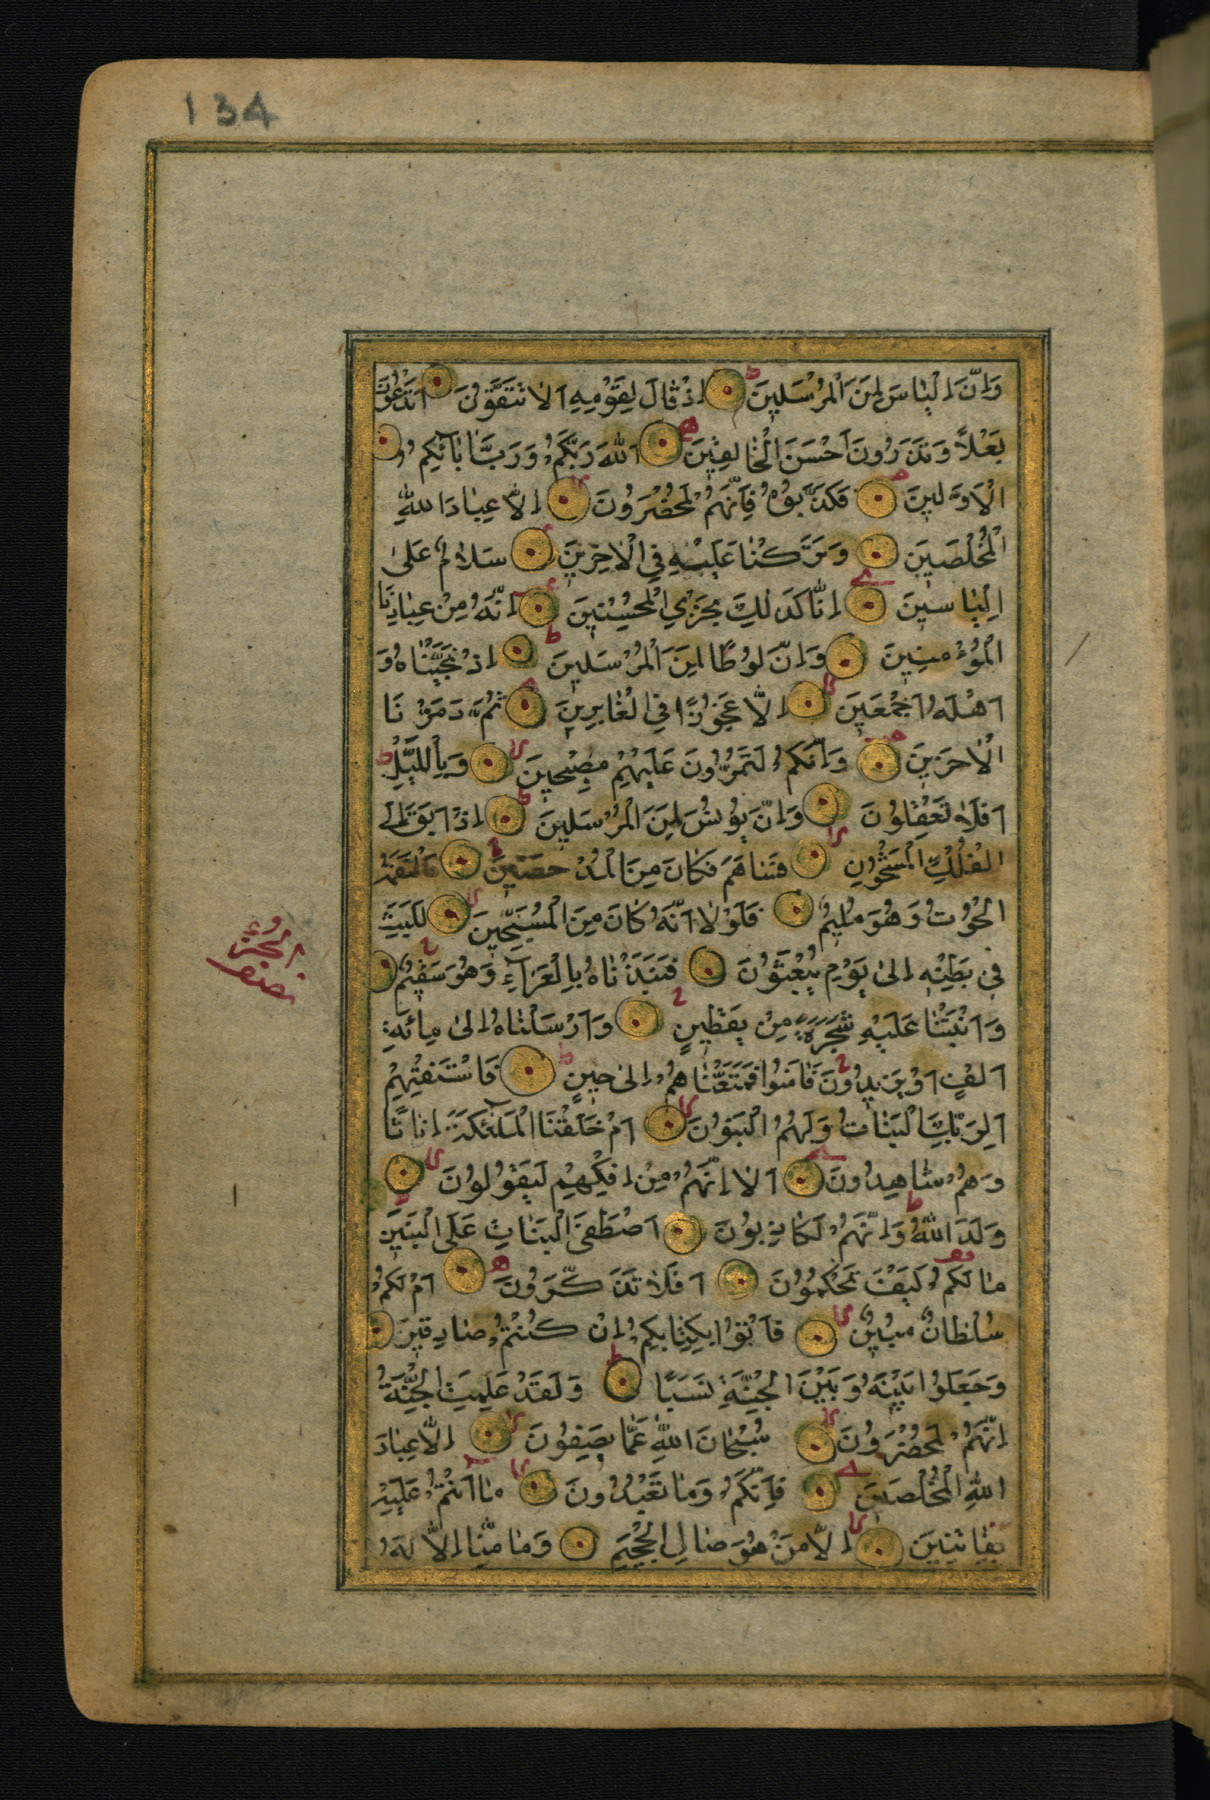 134
وَاِنَّ اِلْيٰاسَ لَمِنَ الْمُرْسَلينَ اِذْ قٰالَ لِقَوْمِهِ اَلاٰ تَتَّقُونَ اَتَدْعُونَ
بَعْلاً وَتَذَرُونَ اَحْسَنَ الْخٰالِقينَ اَللّٰهَ رَبَّكُمْ وَرَبَّ اٰبٰائِكُمُ
الْاَوَّلينَ فَكَذَّبُوهُ فَاِنَّهُمْ لَمُحْضَرُونَ اِلاّٰ عِبٰادَ اللّٰهِ
الْمُخْلَصينَ وَتَرَكْنٰا عَلَيْهِ فِي الْاٰخِرينَ سَلاٰمٌ عَلىٰ
اِلْيٰاسينَ اِنّٰا كَذٰلِكَ نَجْزِي الْمُحْسِنينَ اِنَّهُ مِنْ عِبٰادِنَا
الْمُؤْمِنينَ وَاِنَّ لُوطًا لَمِنَ الْمُرْسَلينَ اِذْ نَجَّيْنٰاهُ وَ
اَهْلَهُ اَجْمَعينَ اِلاّٰ عَجُوزًا فِي الْغٰابِرينَ ثُمَّ دَمَّرْنَا
الْاٰخَرينَ وَاِنَّكُمْ لَتَمُرُّونَ عَلَيْهِمْ مُصْبِحينَ وَبِاللَّيْلِ
اَفَلاٰ تَعْقِلُونَ وَاِنَّ يُونُسَ لَمِنَ الْمُرْسَلينَ اِذْ اَبَقَ اِلَى
الْفُلْكِ الْمَشْحُونِ فَسٰاهَمَ فَكٰانَ مِنَ الْمُدْحَضينَ فَالْتَقَمَهُ
الْحُوتُ وَهُوَ مُليمٌ فَلَوْلاٰ اَنَّهُ كٰانَ مِنَ الْمُسَبِّحينَ لَلَبِثَ
في بَطْنِهِ اِلىٰ يَوْمِ يُبْعَثُونَ فَنَبَذْنٰاهُ بِالْعَرٰاءِ وَهُوَ سَقيمٌ
وَاَنْبَتْنٰا عَلَيْهِ شَجَرَةً مِنْ يَقْطينٍ وَاَرْسَلْنٰاهُ اِلىٰ مِائَةِ
اَلْفٍ اَوْ يَزيدُونَ فَاٰمَنُوا فَمَتَّعْنٰاهُمْ اِلىٰ حينٍ فَاسْتَفْتِهِمْ
اَلِرَبِّكَ الْبَنٰاتُ وَلَهُمُ الْبَنُونَ اَمْ خَلَقْنَا الْمَلٰئِكَةَ اِنٰاثًا
وَهُمْ شٰاهِدُونَ اَلاٰ اِنَّهُمْ مِنْ اِفْكِهِمْ لَيَقُولُونَ
وَلَدَ اللّٰهُ وَاِنَّهُمْ لَكٰاذِبُونَ اَصْطَفَى الْبَنٰاتِ عَلَى الْبَنينَ
مٰا لَكُمْ كَيْفَ تَحْكُمُونَ اَفَلاٰ تَذَكَّرُونَ اَمْ لَكُمْ
سُلْطٰانٌ مُبينٌ فَأْتُوا بِكِتٰابِكُمْ اِنْ كُنْتُمْ صٰادِقينَ
وَجَعَلُوا بَيْنَهُ وَبَيْنَ الْجِنَّةِ نَسَبًا وَلَقَدْ عَلِمَتِ الْجِنَّةُ
اِنَّهُمْ لَمُحْضَرُونَ سُبْحٰانَ اللّٰهِ عَمّٰا يَصِفُونَ اِلاّٰ عِبٰادَ
اللّٰهِ الْمُخْلَصينَ فَاِنَّكُمْ وَمٰا تَعْبُدُونَ مٰا اَنْتُمْ عَلَيْهِ
بِفٰاتِنينَ اِلاّٰ مَنْ هُوَ صٰالِ الْجَحيمِ وَمٰا مِنّٰا اِلاّٰ لَهُ
نصف
الجزء